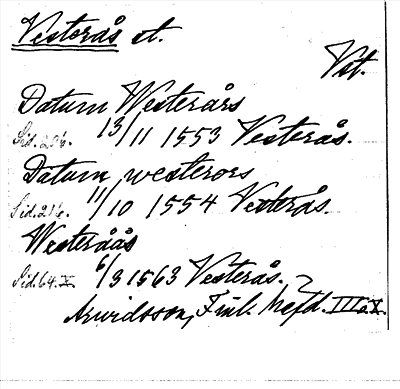 Vesterås st.
Vst.
Datum Westerårs
Sid. 206. 13/11 1553 Vesterås.
Datum westerors
Sid. 216. 11/10 1554 Vesterås.
Westeråås
Sid. 64. X. 6/3 1563 Vesterås.
Arwidsson, Finl. Häfd. III o. X.